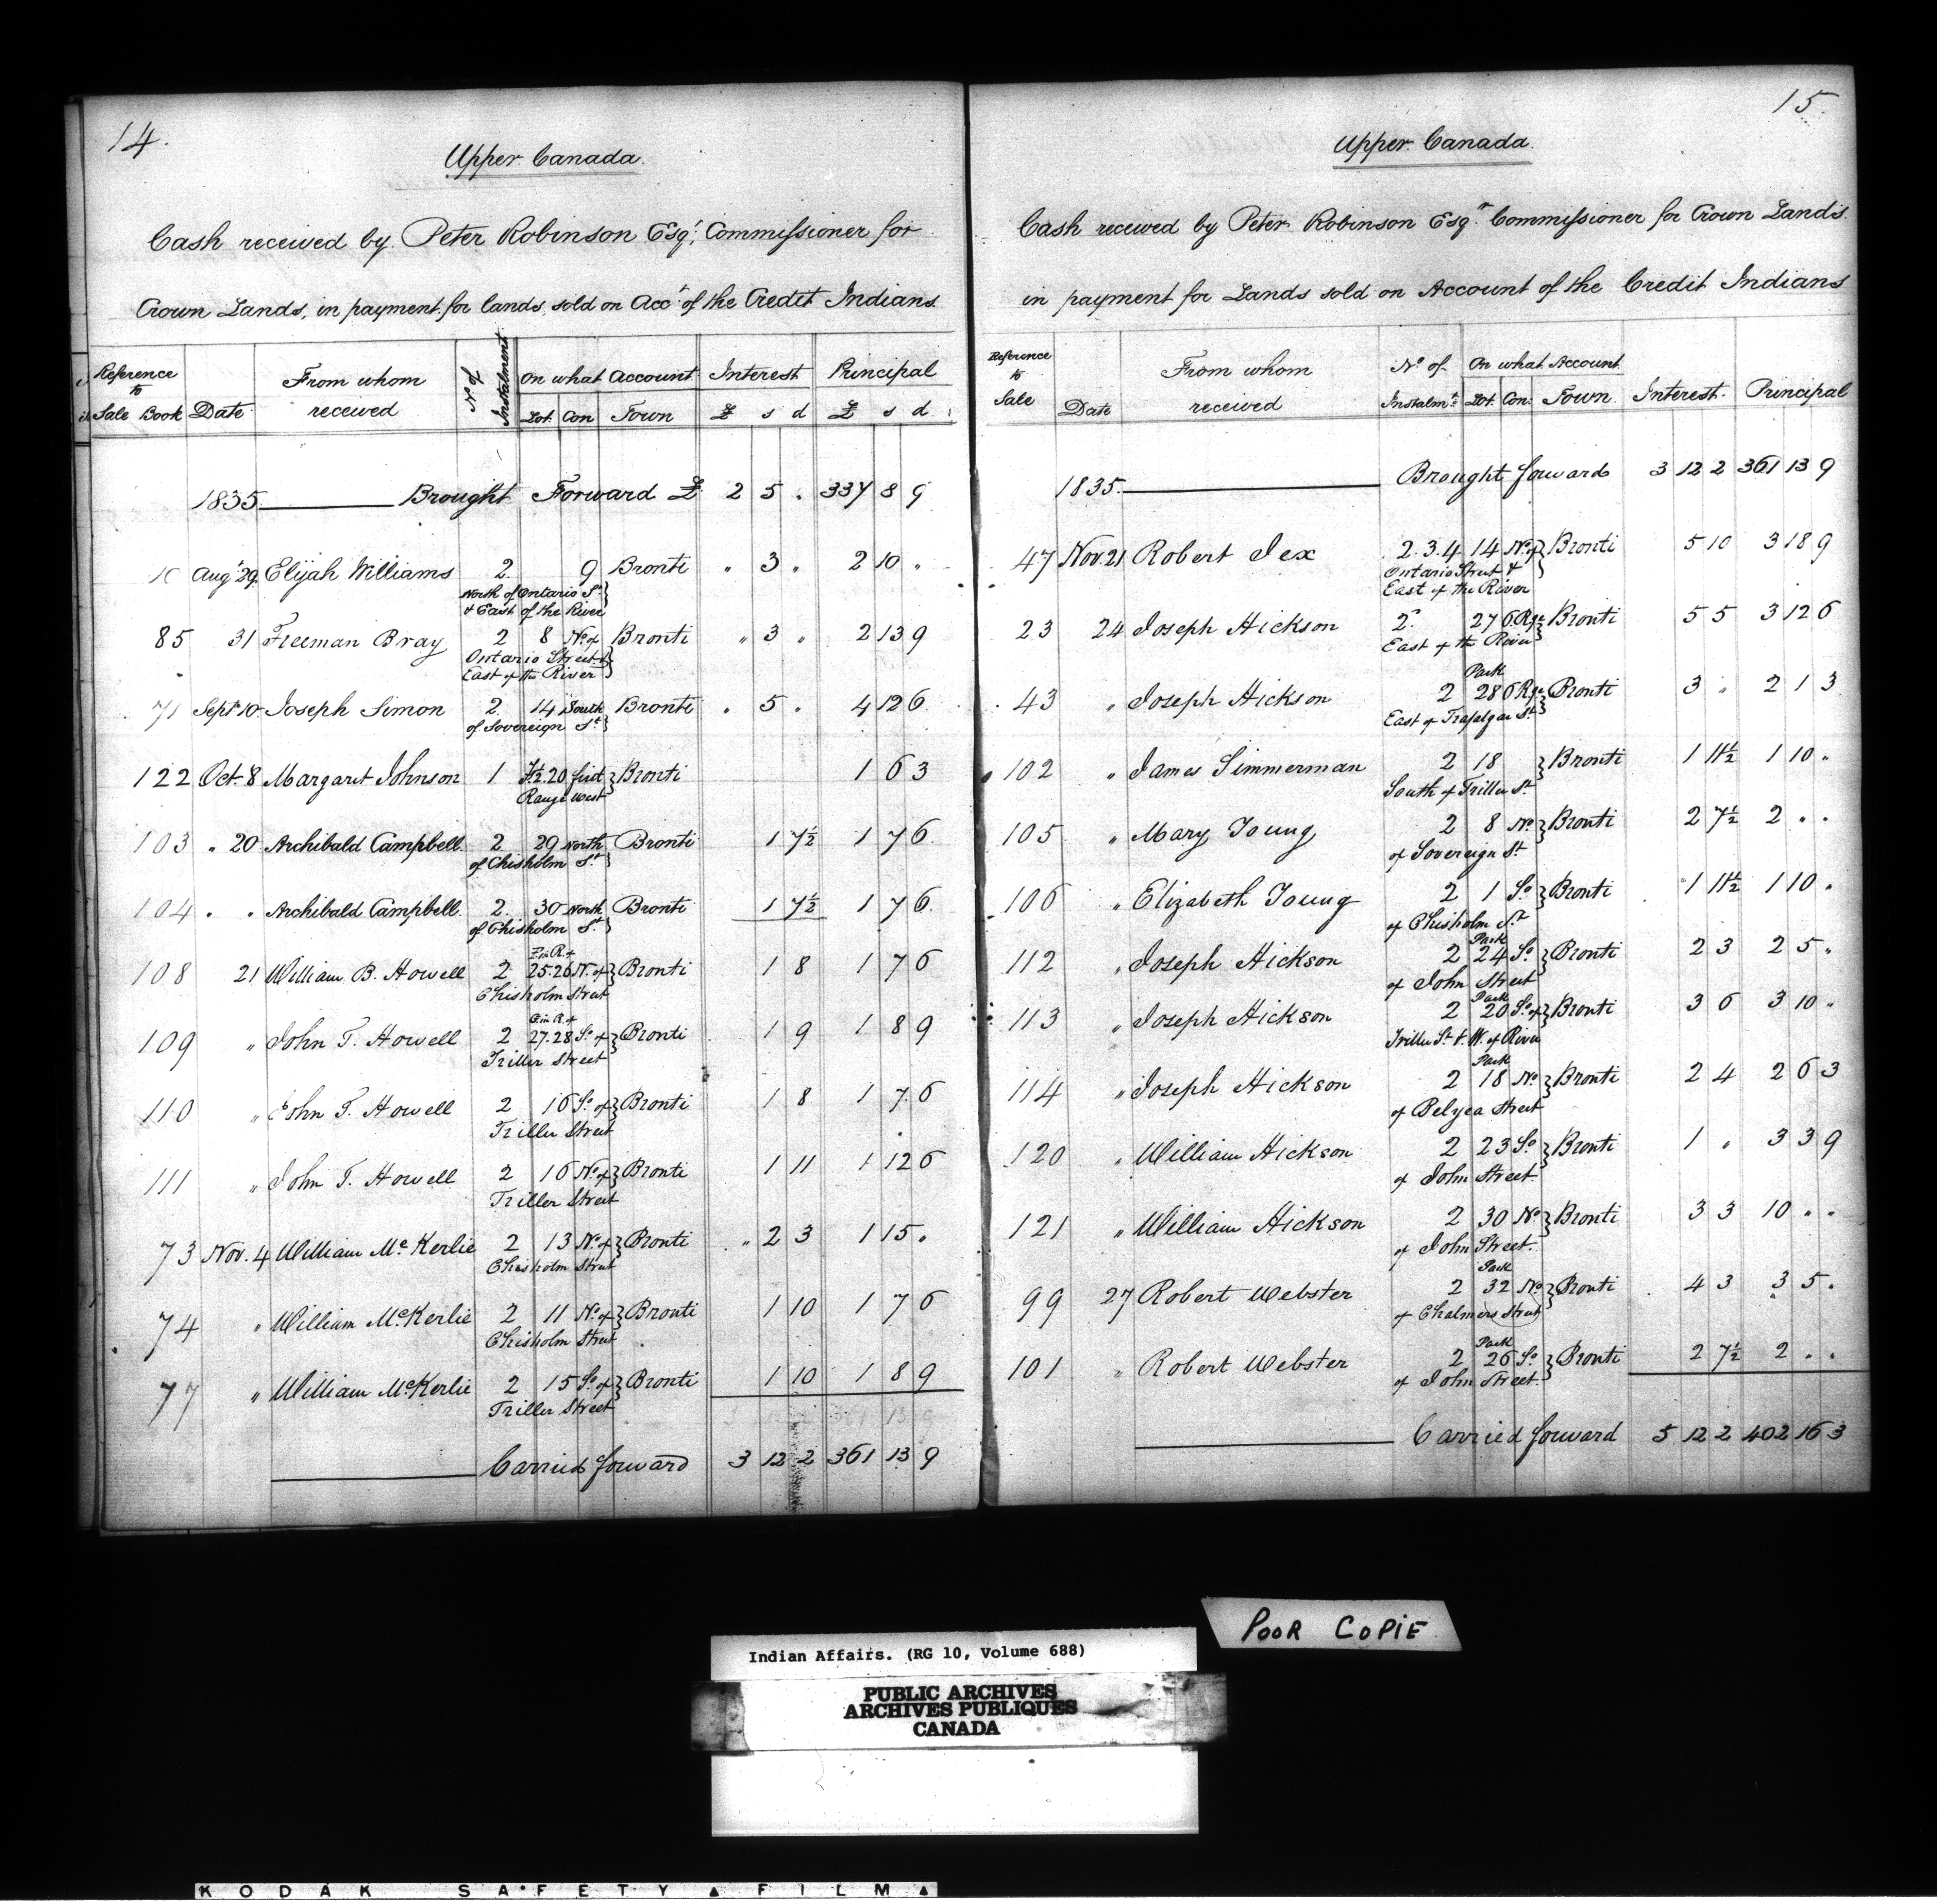 14.
Upper Canada.
Cash received by Peter Robinson Esqr, Commissioner for
Crown Lands, in payment for lands sold on Acct of the Credit Indians
Reference to Sale Book Date From whom received No of Instalment On what Account Interest Principal
Lot Con Town £ s d £ s d
1835 Brought Forward £ 2 5 . 337 8 9
Aug 29 Elijah Williams 2. 9 Bronti " 3 " 2 10 "
North of Ontario St
& East of the River
85 31 Freeman Bray 2 8 No of Bronti " 3 " 2 13 9
Ontario Street &
East of the River
71 Sept 10 Joseph Simon 2 14 South Bronti " 5 " 4 12 6
of Sovereign St
122 Oct. 8 Margaret Johnson 1 20 first Bronti 1 6 3
Range West
103 " 20 Archibald Campbell 2 29 North Bronti 1 7½ 1 7 6
of Chisholm St
104 " " Archibald Campbell 2. 30 North Bronti 1 7½ 1 7 6
of Chisholm St
108 21 William B. Howell 2 25.26 N. of Bronti 1 8 1 7 6
Chisholm Street
109 " John T. Howell 2 27.28 So of Bronti 1 9 1 8 9
Triller Street
110 " John T. Howell 2 16 So of Bronti 1 8 1 7 6
Triller Street
111 " John T. Howell 2 16 No of Bronti 1 11 1 12 6
Triller Street
73 Nov. 4 William McKerlie 2 13 No of Bronti " 2 3 1 15 "
Chisholm Street
74 " William McKerlie 2 11 No of Bronti 1 10 1 7 6
Chisholm Street
77 " William McKerlie 2 15 So of Bronti 1 10 1 8 9
Triller Street
Carried forward 3 12 2 361 13 9
15.
Upper Canada.
Cash received by Peter Robinson Esqr Commissioner for Crown Lands
in payment for Lands sold on Account of the Credit Indians
Reference to Sale Date From whom received No of Instalmt On what Account Interest Principal
Lot. Con: Town
1835. Brought forward 3 12 2 361 13 9
47 Nov. 21 Robert Jex 2.3.4 14 No of Bronti 5 10 3 18 9
Ontario Street &
East of the River
23 24 Joseph Hickson 2 27 6 Rge Bronti 5 5 3 12 6
East of the River
Park
43 " Joseph Hickson 2 28 6 Rge Bronti 3 " 2 1 3
East of Trafalgar St
102 " James Simmerman 2 18 Bronti 1 11½ 1 10 "
South of Triller St
105 " Mary Young 2 8 No Bronti 2 7½ 2 " "
of Sovereign St
106 " Elizabeth Young 2 1 So Bronti 1 11½ 1 10 "
of Chisholm St
Park
112 " Joseph Hickson 2 24 So Bronti 2 3 2 5 "
of John Street
Park
113 " Joseph Hickson 2 20 So of Bronti 3 6 3 10 "
Triller St & W. of River
Park
114 " Joseph Hickson 2 18 No Bronti 2 4 2 6 3
of Belyea Street
120 " William Hickson 2 23 So Bronti 1 " 3 3 9
of John Street
121 " William Hickson 2 30 No Bronti 3 3 10 " "
of John Street.
Park
99 27 Robert Webster 2 32 No Bronti 4 3 3 5 "
of Chalmers Street
Park
101 " Robert Webster 2 26 So Bronti 2 7½ 2 " "
of John Street.
Carried forward 5 12 2 402 16 3
POOR COPIE
Indian Affairs. (RG 10, Volume 688)
PUBLIC ARCHIVES
ARCHIVES PUBLIQUES
CANADA
KODAK SAFETY FILM